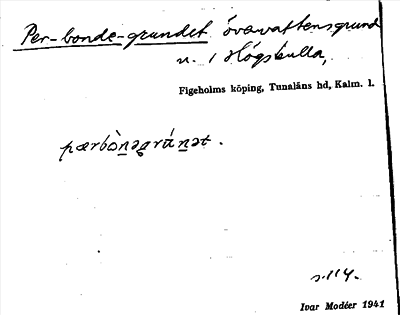 Per-bonde-grundet övervattensgrund
n. / Högskulla,
Figeholms köping, Tunaläns hd, Kalm. l.
pærbòn̲əgrán̲ət.
s. 114.
Ivar Modéer 1941